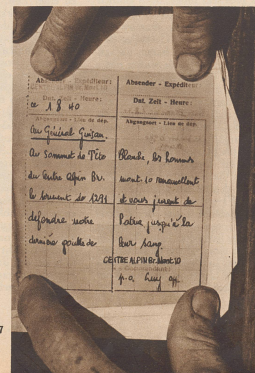 Absender - Expéditeur:
CENTRE ALPIN Br. Mont. 10
Dat. Zeit - Heure:
ce 1 8 40
Abgangsort - Lieu de dép.
Au Général Guisan.
Au Sommet de Tête
du Centre Alpin Br.
le serment de 1291
défendre notre
dernière goutte de
Absender - Expéditeur:
Dat. Zeit - Heure:
Abgangsort - Lieu de dép.
Blanche, les hommes
mont. 10 renouvellent
et vous jurent de
Patrie jusqu'à la
leur sang.
CENTRE ALPIN Br. Mont. 10
p.o.
7